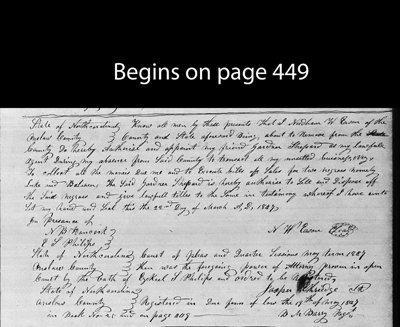 Begins on page 449
State of North Carolina } Know all men by these presents that I Needham W. Ewen of the
Onslow County } County and State aforesaid Being about to Remove from the State
County Do hereby Authorise and appoint my friend Gardner Shepard as my lawfull
Agent During my absence from Said County to transact all my unsettled business, &
To collect all the monies Due me and to Execute bills of Sales for two negroes namely
Luke and the Said Gardner Shepard is hereby authorise to Sell and Dispose off
the Said negroes and give lawfull titles to the Same in testimony whereof I have unto
Set my hand and Seal this the 22nd Day of March A.D. 1847
In Presence of
N B Hancock } N W Ewen Seal
E S Philips }
State of North Carolina } Court of Pleas and Quarter Sessions may term 1847
Onslow County } Then was the foregoing power of Attorney proven in open
Court by the Oath of Ezekiel S Philips and ordered to be Registered
State of North Carolina } Jasper Etheridge Clk
Onslow County } Registered in Due form of law the 19th of may 1847
in Book No 22 and on page 449 B McBerry Regr